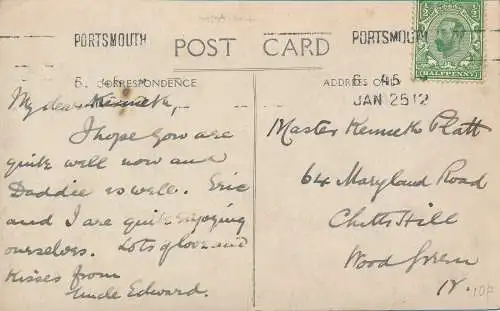 PORTSMOUTH
PORTSMOUTH
POST CARD
HALFPENNY
6. 45
CORRESPONDENCE
ADDRESS ONLY
6. 45
JAN 25 12
My dear Kenneth,
I hope you are
quite well now and
Daddie is well. Eric
and I are quite enjoying
ourselves. Lots of love and
Kisses from
Uncle Edward.
Master Kenneth Platt
64 Maryland Road
Chitts Hill
Wood Green
N.